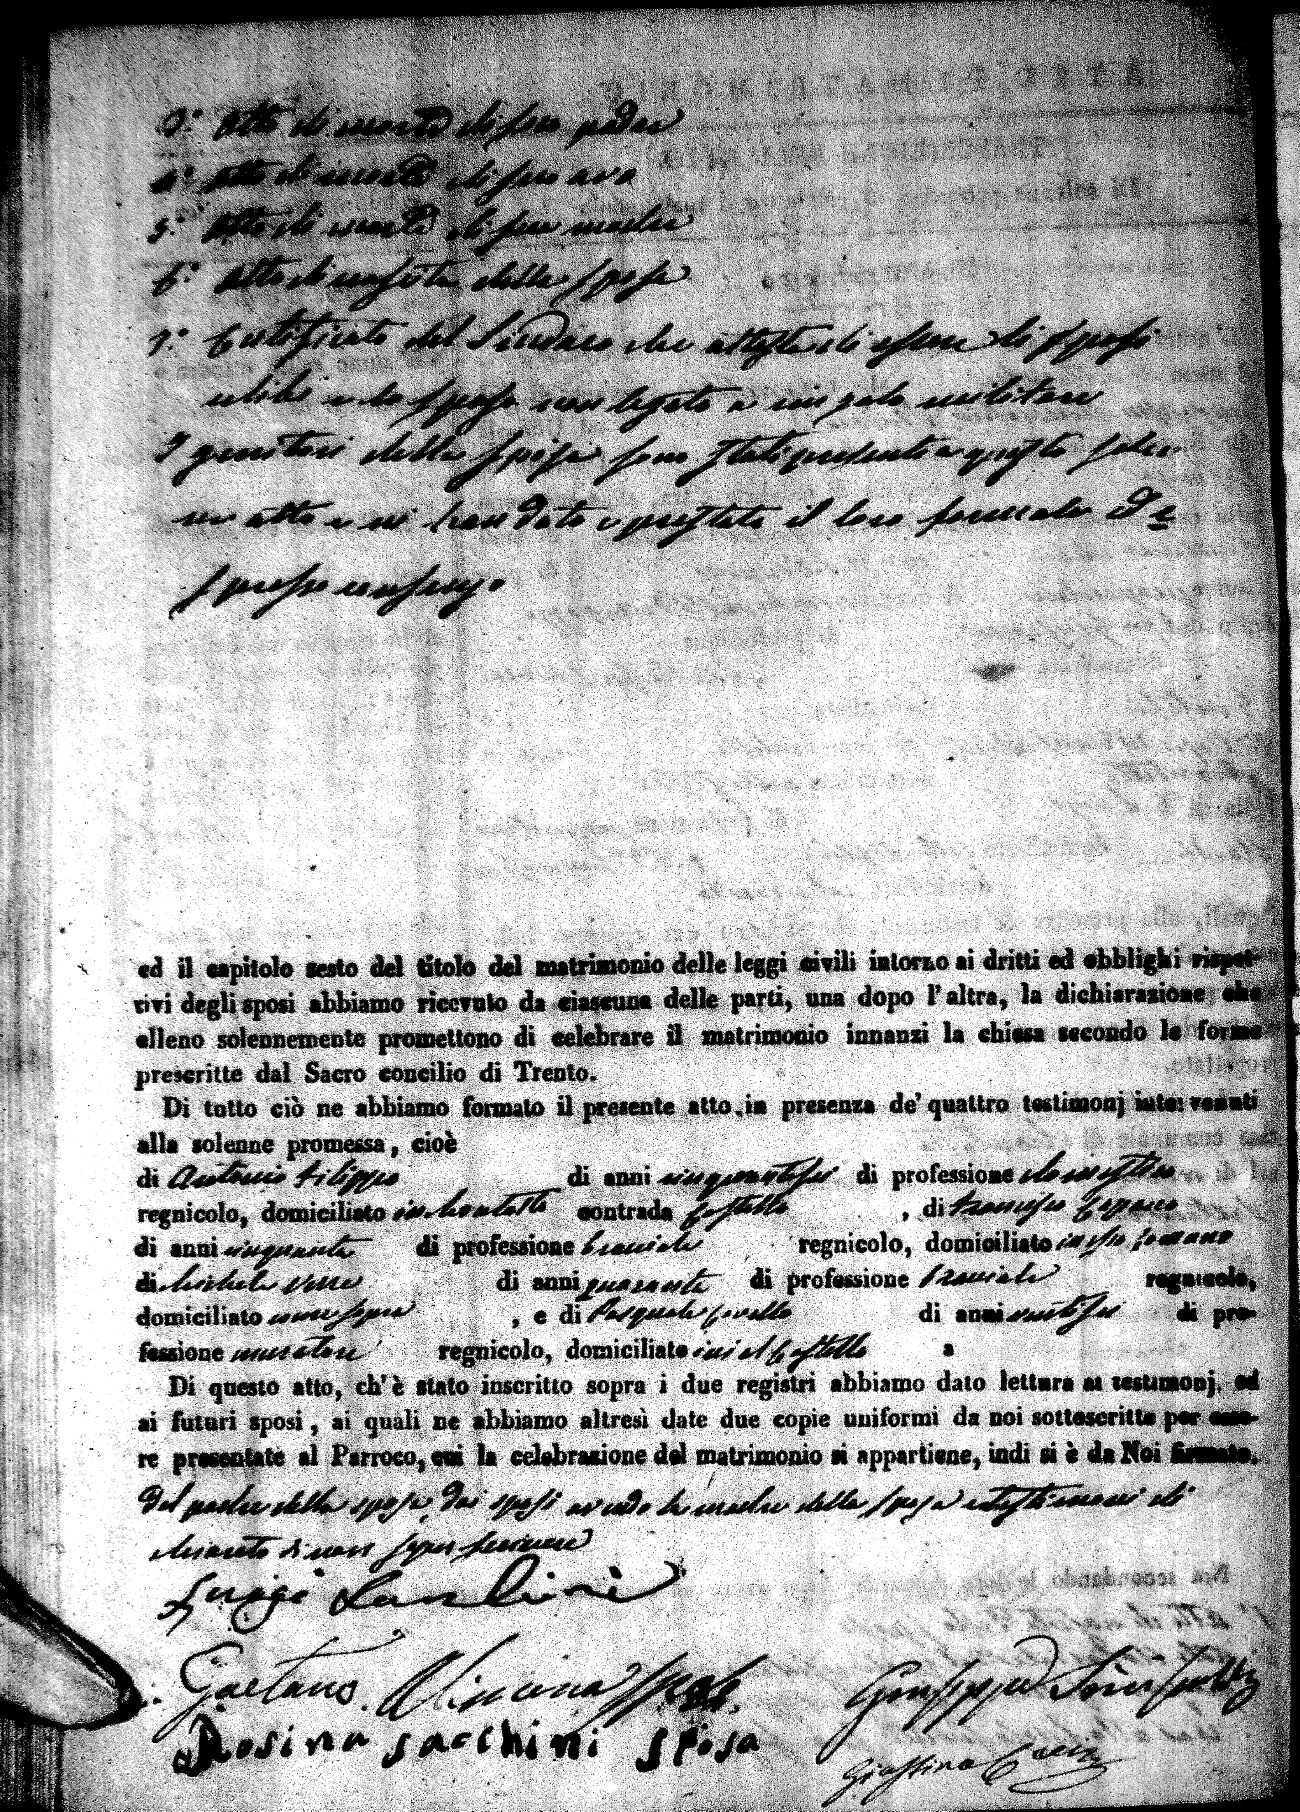 3.° Atto di morte di suo padre
4.° Atto di morte di suo avo
5.° Atto di morte di sua madre
6.° Atto di nascita della sposa
7.° Certificato del Sindaco che attesta di essere li sposi
celibi e lo sposo non legato a vincolo militare
I genitori della sposa sono stati presenti a questo solen
ne atto e vi han dato e prestato il loro formale ed e
spresso consenso
ed il capitolo sesto del titolo del matrimonio delle leggi civili intorno ai dritti ed obblighi rispet-
tivi degli sposi abbiamo ricevuto da ciascuna delle parti, una dopo l'altra, la dichiarazione che
elleno solennemente promettono di celebrare il matrimonio innanzi la chiesa secondo le forme
prescritte dal Sacro concilio di Trento.
Di tutto ciò ne abbiamo formato il presente atto in presenza de' quattro testimonj intervenuti
alla solenne promessa, cioè
di Antonio Filippo di anni cinquantasei di professione
regnicolo, domiciliato in contrada Castello , di Francesco
di anni cinquanta di professione bracciale regnicolo, domiciliato
di Michele di anni quaranta di professione bracciale regnicolo,
domiciliato come sopra , e di Pasquale di anni ventisei di pro-
fessione muratore regnicolo, domiciliato ivi al Castello a
Di questo atto, ch'è stato inscritto sopra i due registri abbiamo dato lettura ai testimonj, ed
ai futuri sposi, ai quali ne abbiamo altresì date due copie uniformi da noi sottoscritte per esse-
re presentate al Parroco, cui la celebrazione del matrimonio si appartiene, indi si è da Noi firmato.
Dal padre della sposa, dai sposi avendo la madre della sposa e testimoni di
chiarato di non saper scrivere
Luigi
Gaetano sposo
Giuseppe
Rosina sacchini sposa
Giustino